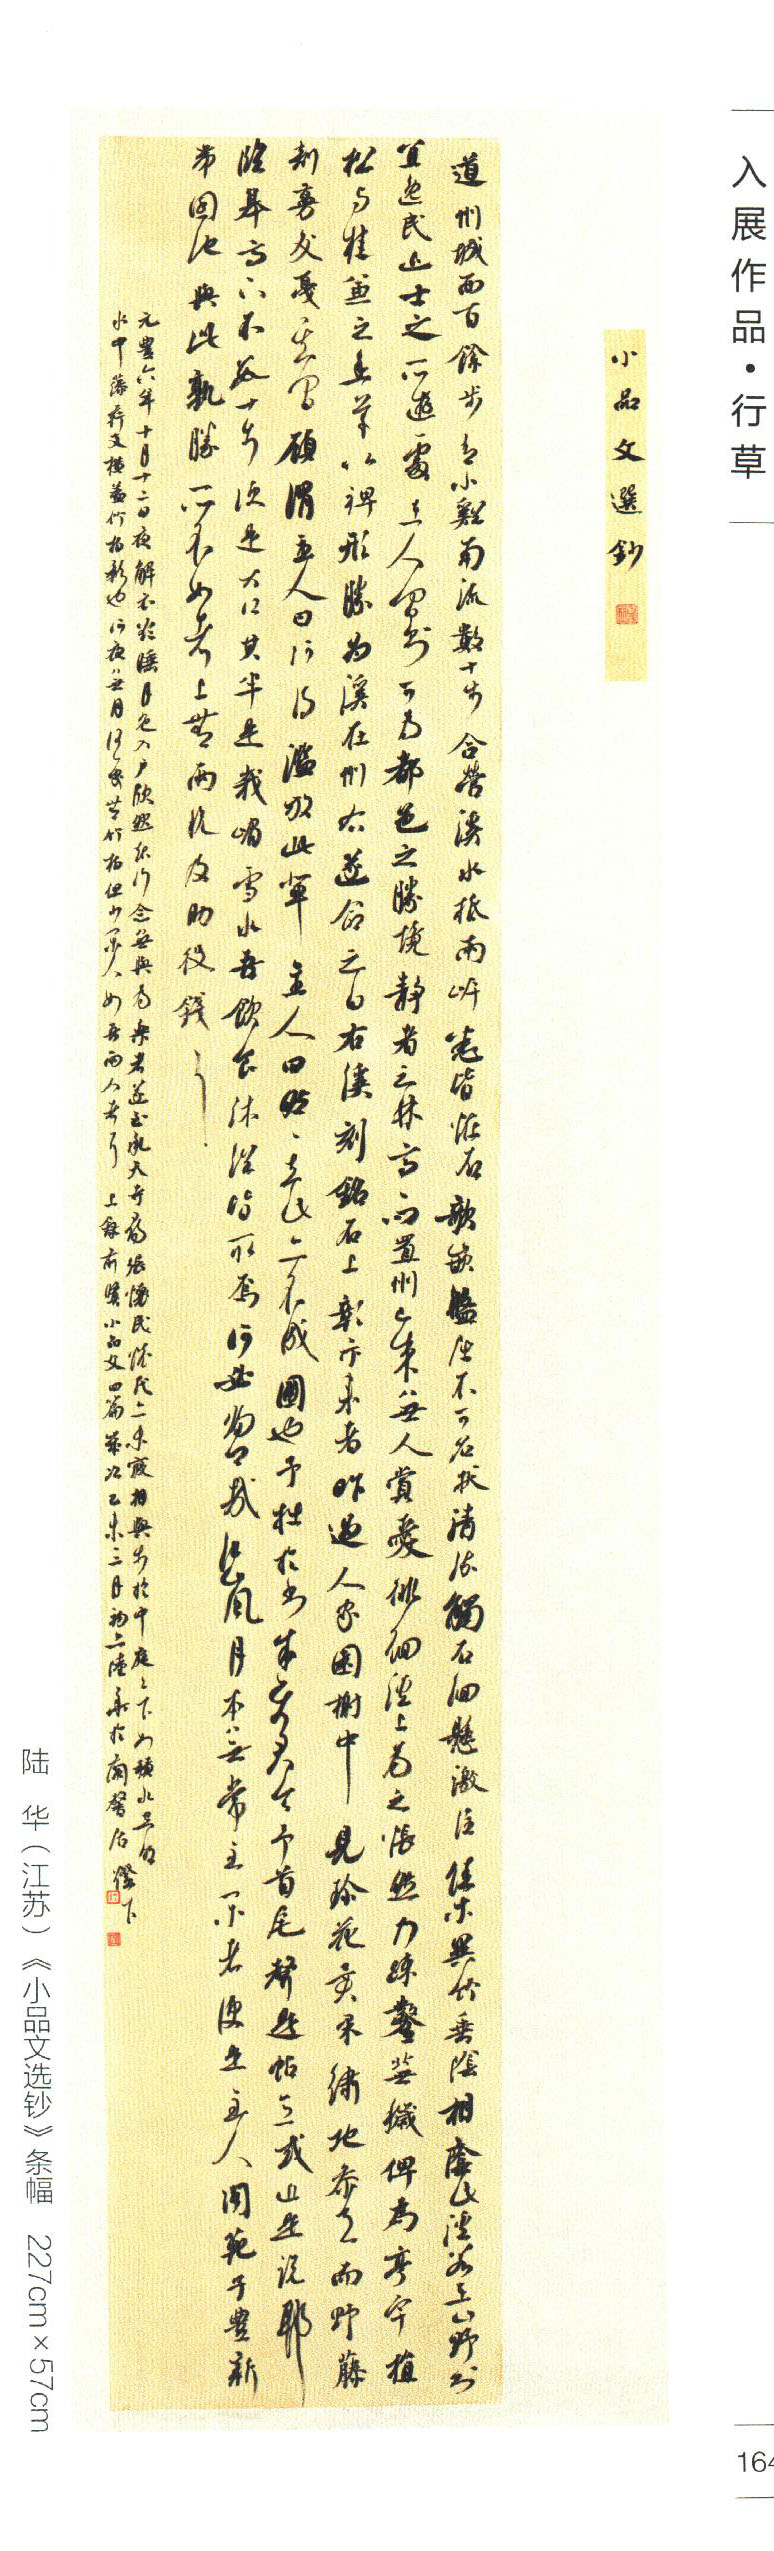 入展作品·行草
小品文選鈔
道州城西百餘步有小溪南流數十步合營溪水抵兩岸悉皆怪石欹嵌盤陀不可名狀清流觸石洄懸激注佳木異竹垂陰相蔭此溪若在山野則
宜逸民退士之所遊處在人間則可為都邑之勝境靜者之林亭而置州已來無人賞愛徘徊溪上為之悵然乃疏鑿蕪穢俾為亭宇植
松與桂兼之香草以裨形勝為溪在州右遂命之曰右溪刻銘石上彰示來者昨過人家園榭中見珍花異果繡地參天而野藤
刺蔓交戛其間顧謂主人曰何得濫放此輩主人曰然然去此亦不成園也予拙於書朱奕美令予首尾
臨皋亭下不數十步便是大江其半是峨嵋雪水吾飲食沐浴皆取焉何必歸鄉哉江山風月本無常主閑者便是主人聞范子豐新
第園池與此孰勝所不如者上無兩稅及助役錢耳
元豐六年十月十二日夜解衣欲睡月色入戶欣然起行念無與為樂者遂至承天寺尋張懷民懷民亦未寢相與步於中庭庭下如積水空明
水中藻荇交橫蓋竹柏影也何夜無月何處無竹柏但少閑人如吾兩人者耳 上錄前賢小品文四篇 歲次乙未三月初六陸華於
陆 华（江苏）《小品文选钞》条幅 227cm×57cm
164